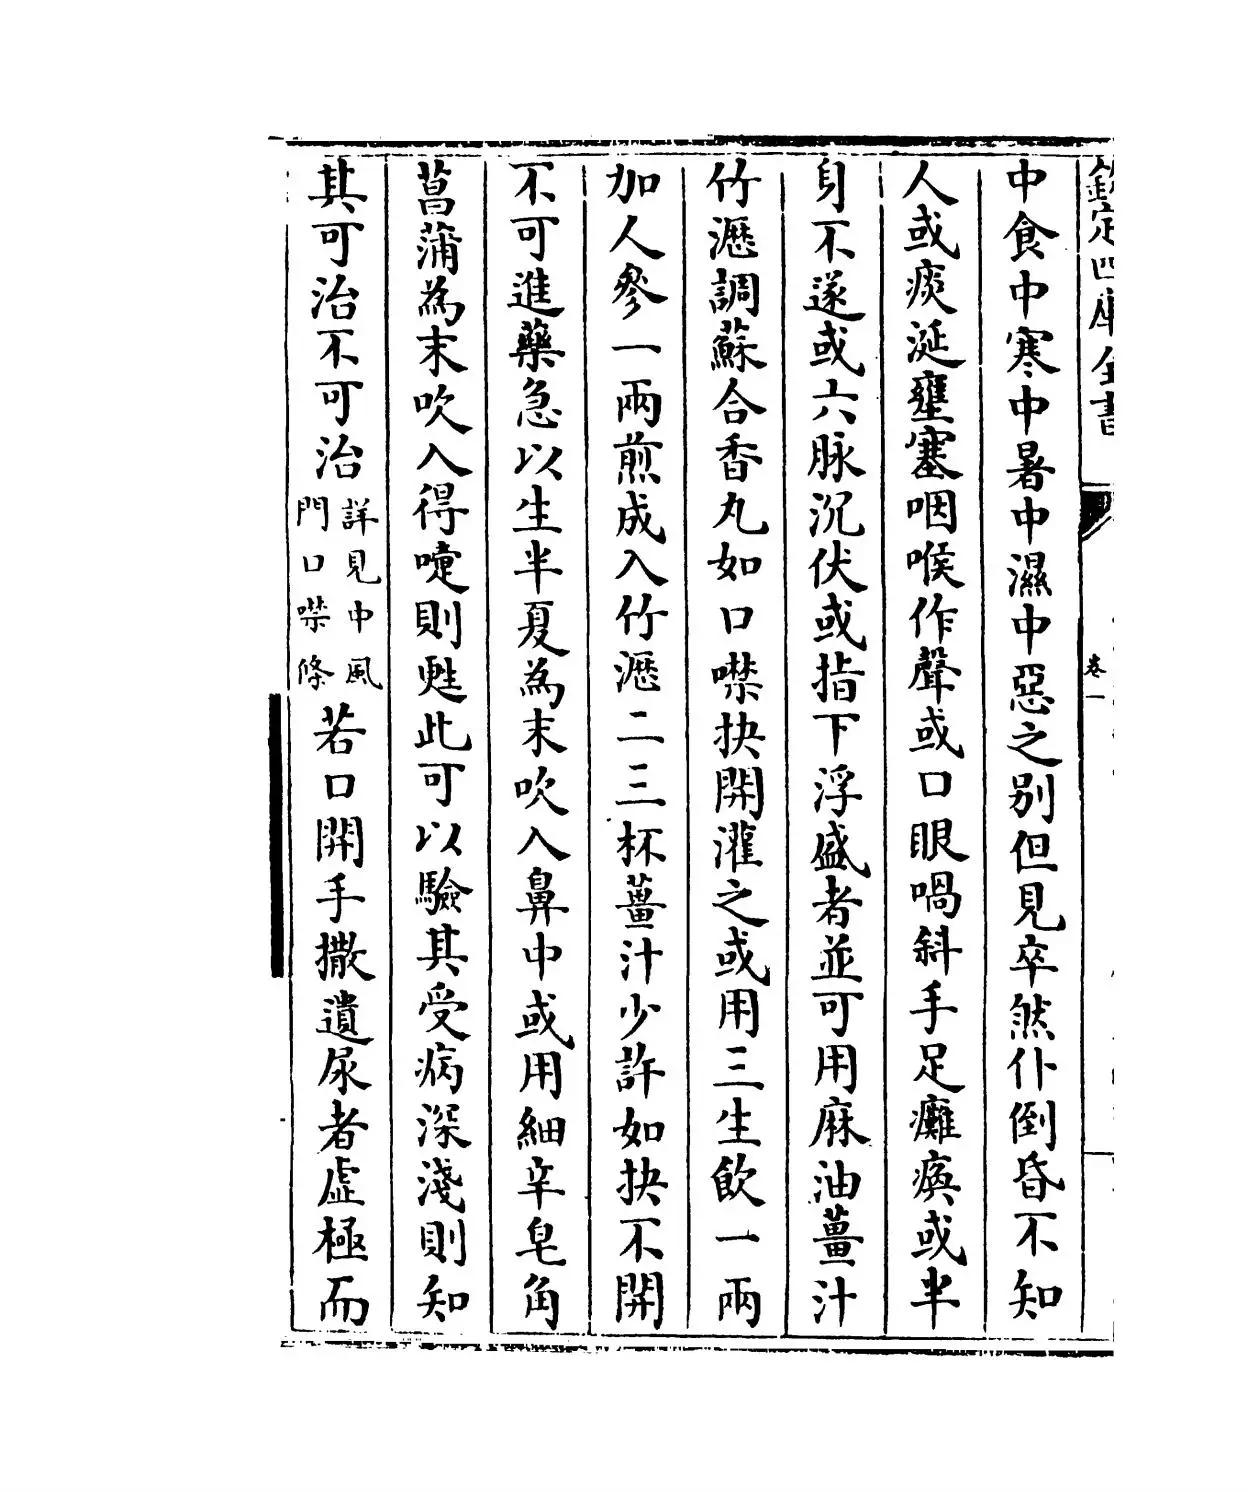 欽定四庫全書
卷一
中食中寒中暑中濕中惡之别但見卒然仆倒昏不知
人或痰涎壅塞咽喉作聲或口眼喎斜手足癱瘓或半
身不遂或六脉沉伏或指下浮盛者並可用麻油薑汁
竹瀝調蘇合香丸如口噤抉開灌之或用三生飲一兩
加人參一兩煎成入竹瀝二三杯薑汁少許如抉不開
不可進藥急以生半夏為末吹入鼻中或用細辛皂角
菖蒲為末吹入得嚏則甦此可以驗其受病深淺則知
其可治不可治
詳見中風
門口噤條
若口開手撒遺尿者虛極而